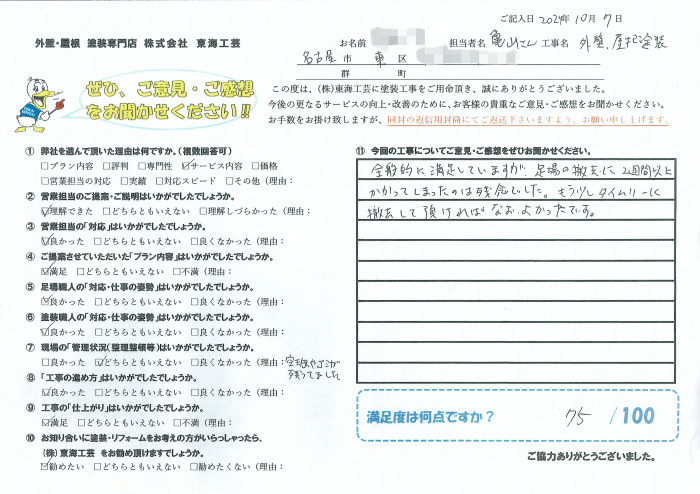 ご記入日 2024年 10月 7日
外壁・屋根 塗装専門店 株式会社 東海工芸
お名前 担当者名 亀山さん 工事名 外壁、屋根塗装
名古屋 市 東 区
郡 町
ぜひ、ご意見・ご感想
をお聞かせください!!
この度は、(株)東海工芸に塗装工事をご用命頂き、誠にありがとうございました。
今後の更なるサービスの向上・改善のために、お客様の貴重なご意見・ご感想をお聞かせください。
お手数をお掛け致しますが、同封の返信用封筒にてご返送下さいますよう、お願い申し上げます。
① 弊社を選んで頂いた理由は何ですか。(複数回答可)
□プラン内容 □評判 □専門性 ☑サービス内容 □価格
□営業担当の対応 □実績 □対応スピード □その他(理由:
② 営業担当のご提案・ご説明はいかがでしたでしょうか。
☑理解できた □どちらともいえない □理解しづらかった(理由:
③ 営業担当の「対応」はいかがでしたでしょうか。
☑良かった □どちらともいえない □良くなかった(理由:
④ ご提案させていただいた「プラン内容」はいかがでしたでしょうか。
☑満足 □どちらともいえない □不満(理由:
⑤ 足場職人の「対応・仕事の姿勢」はいかがでしたでしょうか。
☑良かった □どちらともいえない □良くなかった(理由:
⑥ 塗装職人の「対応・仕事の姿勢」はいかがでしたでしょうか。
☑良かった □どちらともいえない □良くなかった(理由:
⑦ 現場の「管理状況(整理整頓等)はいかがでしたでしょうか。
□良かった ☑どちらともいえない □良くなかった(理由:空き缶やゴミが
残ってました
⑧ 「工事の進め方」はいかがでしたでしょうか。
☑良かった □どちらともいえない □良くなかった(理由:
⑨ 工事の「仕上がり」はいかがでしたでしょうか。
☑満足 □どちらともいえない □不満(理由:
⑩ お知り合いに塗装・リフォームをお考えの方がいらっしゃったら、
(株)東海工芸 をお勧め頂けますでしょうか。
☑勧めたい □どちらともいえない □勧めたくない(理由:
⑪ 今回の工事についてご意見・ご感想をぜひお聞かせください。
全般的に満足していますが、足場の撤去に2週間以上
かかってしまったのは残念でした。もう少しタイムリーに
撤去して頂ければなお、よかったです。
満足度は何点ですか? 75 /100
ご協力ありがとうございました。